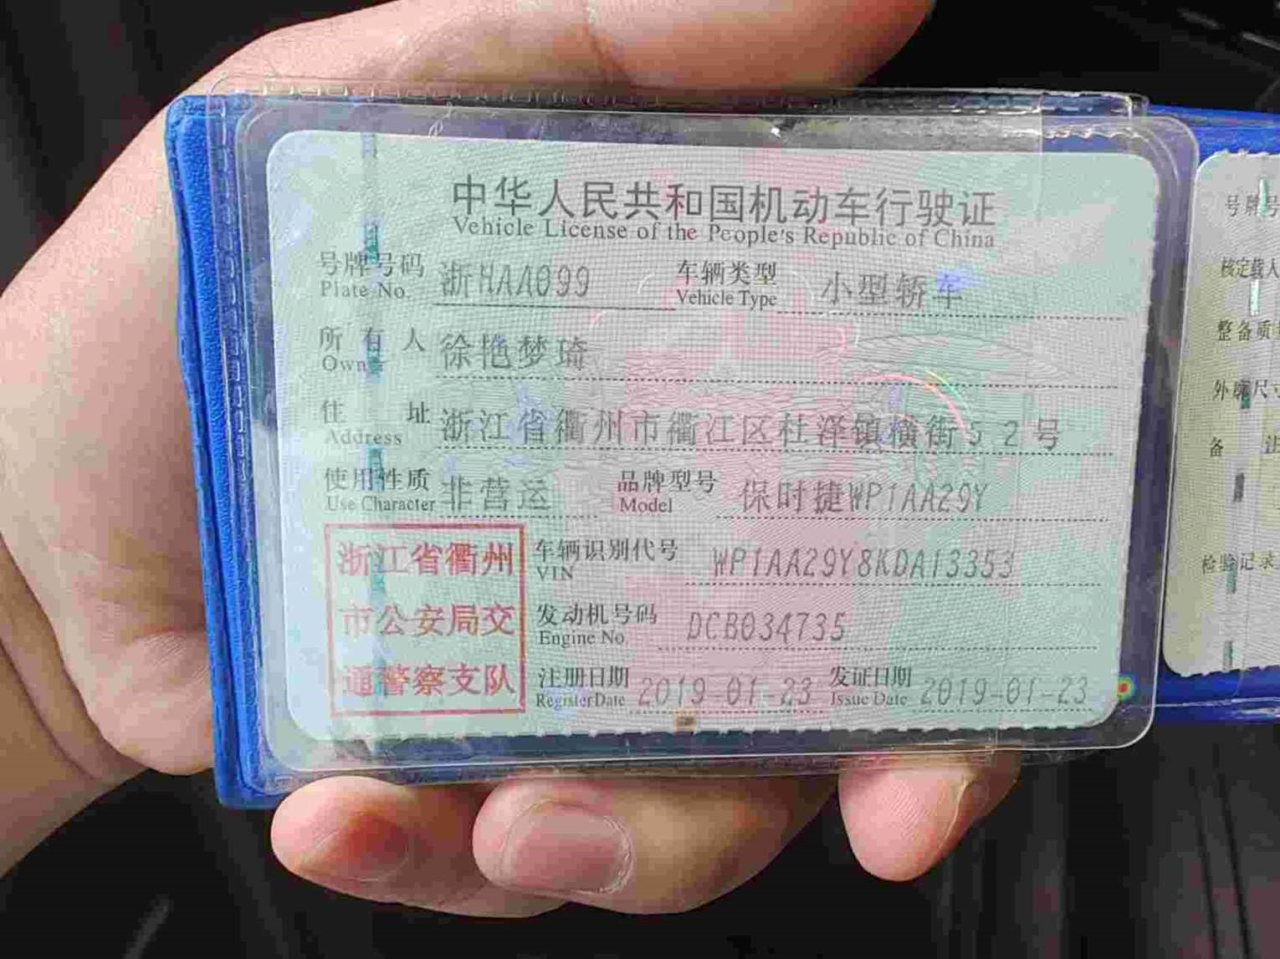 中华人民共和国机动车行驶证
Vehicle License of the People's Republic of China
号牌号码 浙HAA099 车辆类型 小型轿车
Plate No. Vehicle Type
所有人 徐艳梦琦
Owner
住址 浙江省衢州市衢江区杜泽镇横街52号
Address
使用性质 非营运 品牌型号 保时捷WP1AA29Y
Use Character Model
浙江省衢州
市公安局交
通警察支队
车辆识别代号 WP1AA29Y8KDA13353
VIN
发动机号码 DCB034735
Engine No.
注册日期 2019-01-23 发证日期 2019-01-23
Register Date Issue Date
号牌号
核定载人
整备质
外廓尺寸
备 注
检验记录